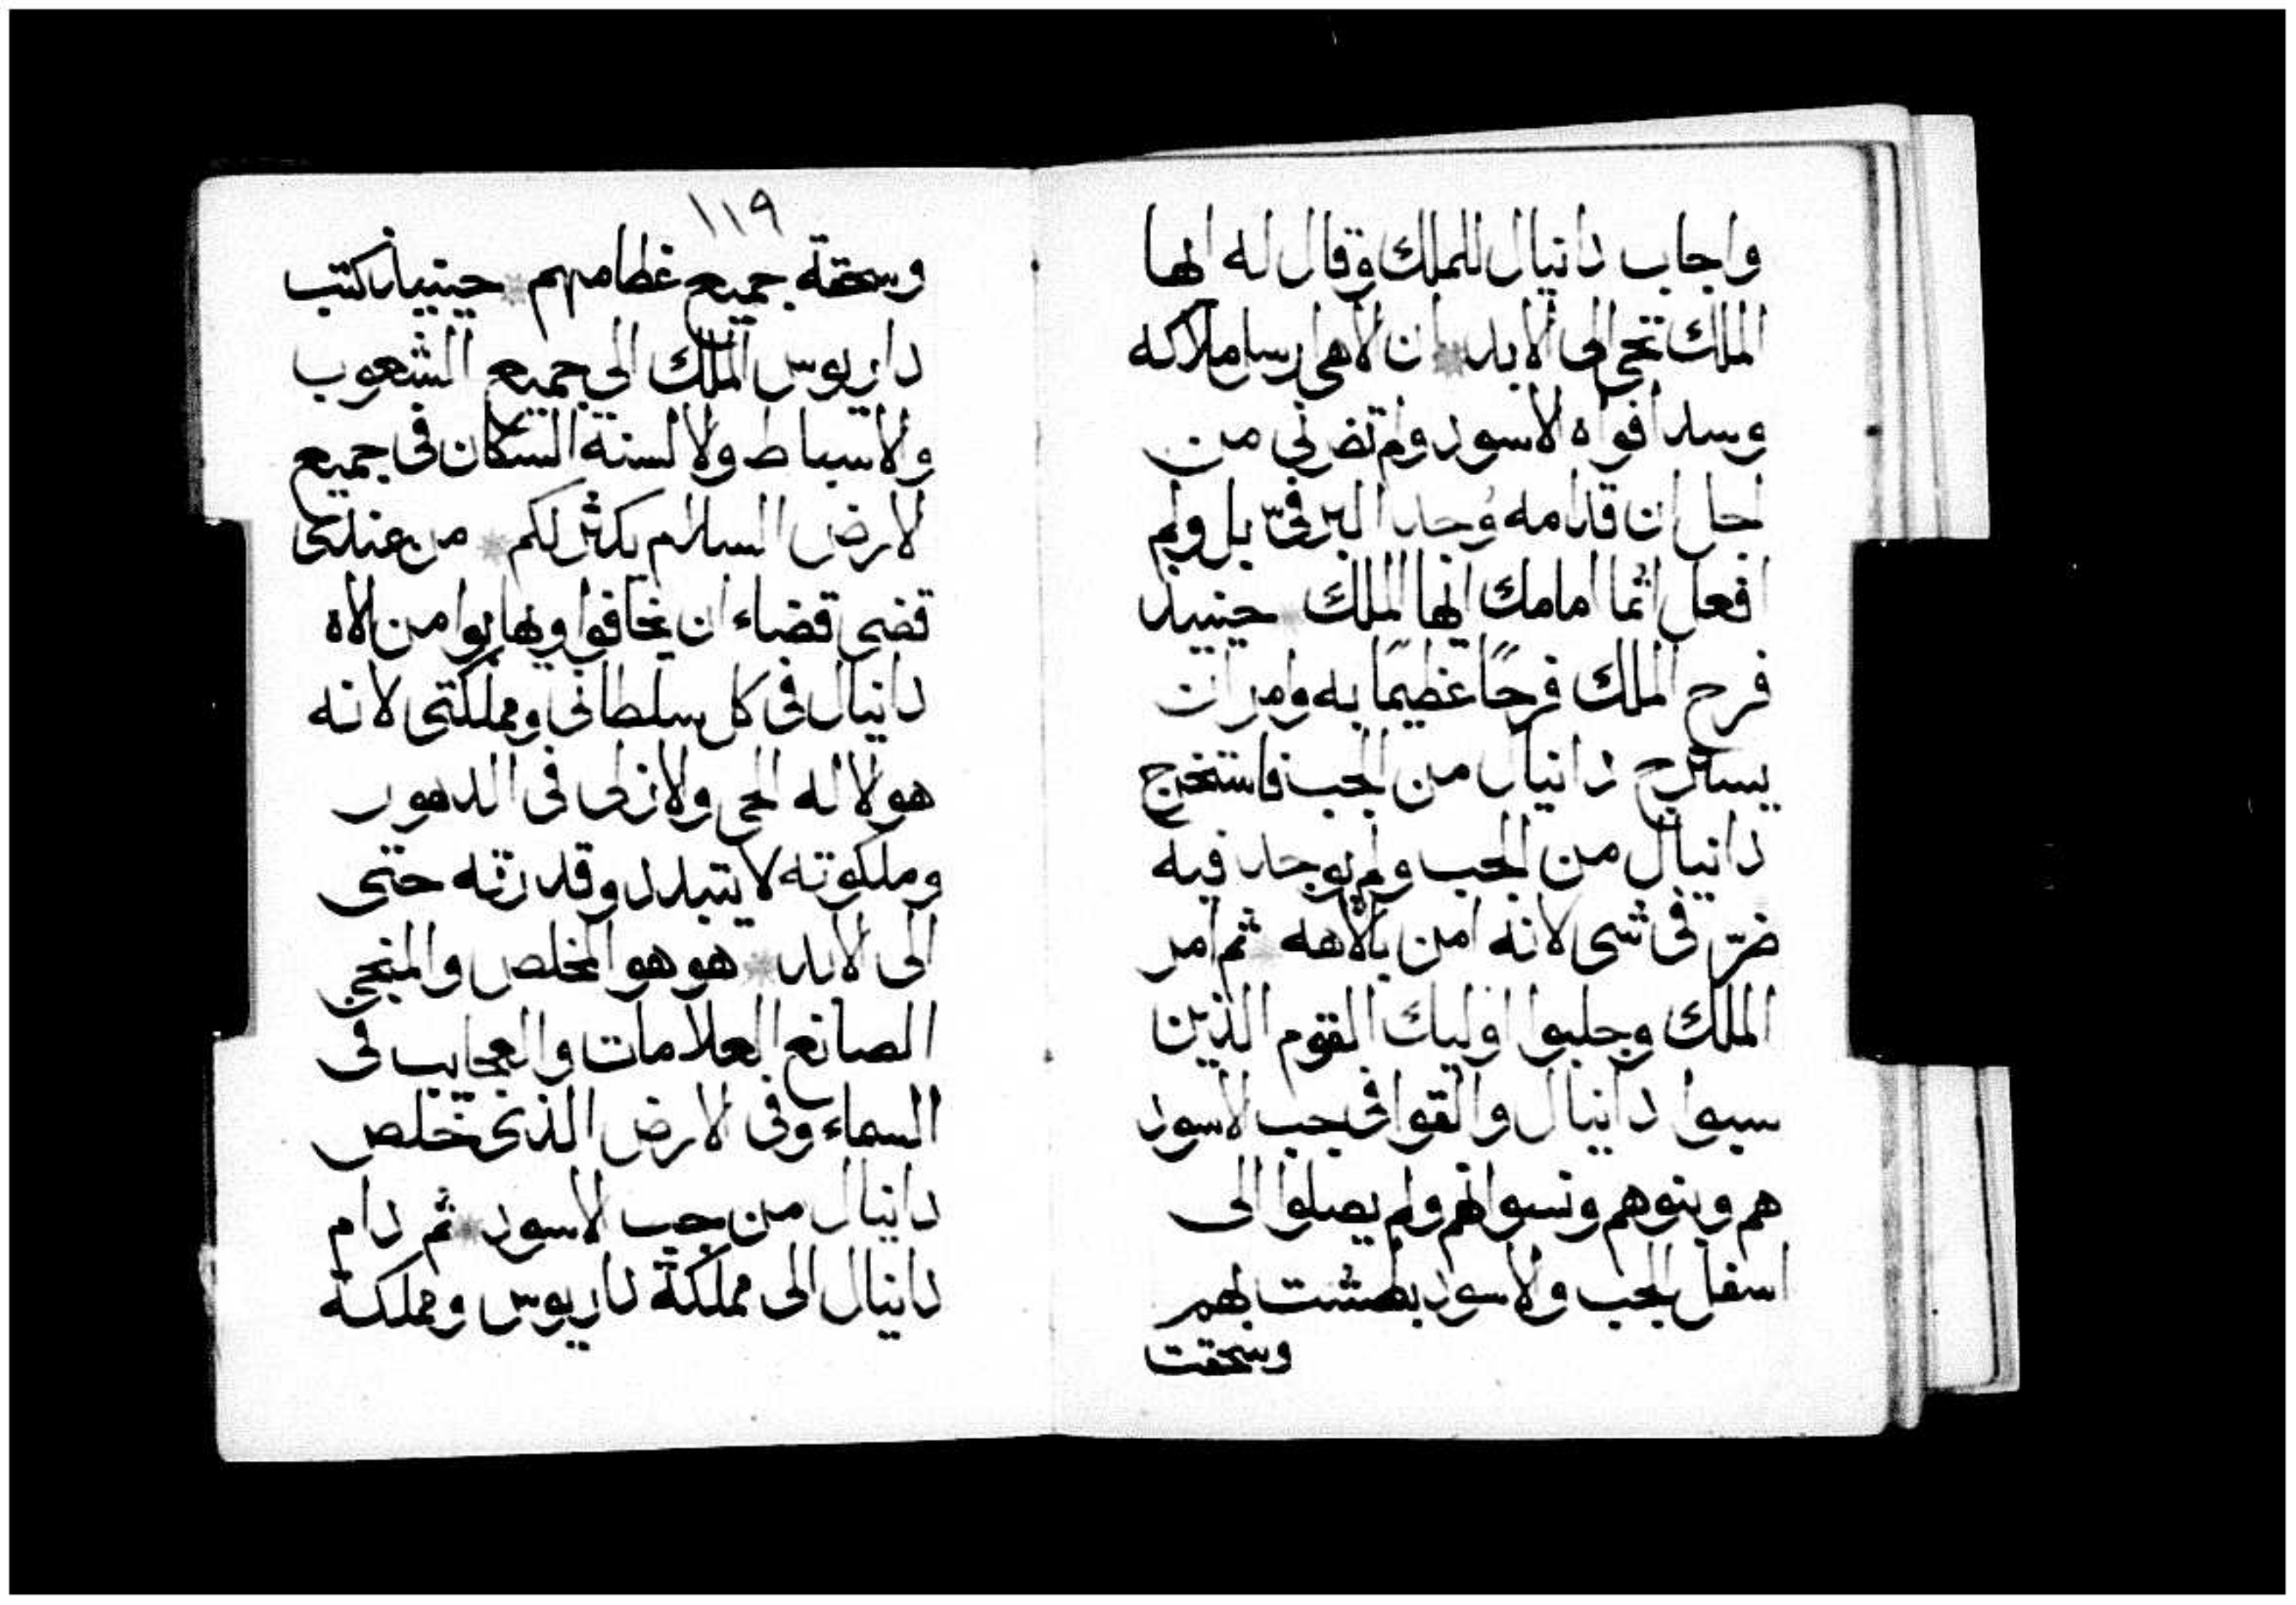 واجاب دانيال للملك وقال له ايها
الملك تحيى الى الابد ٭ ان لاهى ارسل ملاكه
وسد افواه لاسود ولم تضرنى من
اجل ان قدامه وُجد البر فىّ بل ولم
افعل اثما امامك ايها الملك ٭ حينيذ
فرح الملك فرحًا عظيمًا به وامر ان
يستخرج دانيال من الجب فاستخرج
دانيال من الجب ولم يوجد فيه
ضرّ فى شى لانه امن بالاهه ٭ ثم امر
الملك وجلبوا اوليك القوم الذين
سبوا دانيال والقوا فى جب لاسود
هم وبنوهم ونسوانهم ولم يصلوا الى
اسفل الجب ولاسود بطشت بهم
وسحقت
١١٩
وسحقة جميع عظامهم ٭ حينيذ كتب
داريوس الملك الى جميع الشعوب
ولاسباط ولالسنة السكان فى جميع
لارض السلام يكثر لكم ٭ من عندى
قضى قضاء ان يخافوا ويهابوا من لاه
دانيال فى كل سلطانى ومملكتى لانه
هو لاله الحى ولازلى فى الدهور
وملكوته لا يتبدد وقدرته حتى
الى لابد ٭ هو هو المخلص والمنجى
الصانع العلامات والعجايب فى
السماء وفى لارض الذى خلص
دانيال من جب لاسود ٭ ثم دام
دانيال الى مملكة داريوس ومملكة